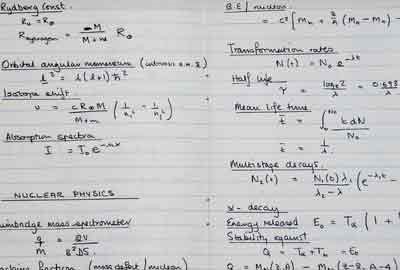 Rydberg Const.
R₀ = R∞
R hydrogen = M / M+m R∞
Orbital angular momentum (
l² = l(l+1)ħ²
Isotope shift.
υ = cR∞M / M+m (1/n₁² - 1/n₂²)
Absorption spectra
I = I₀e
NUCLEAR PHYSICS
mass spectrometer
q/M = 2V / B²DS
fraction (mass defect/nucleon)
B.E/nucleon
= c² [Mₙ + Z/A (M - Mₙ) -
Transformation rates
N(t) = N₀ e^-λt
Half life
τ = logₑ2 / λ = 0.693 / λ
Mean life time
t̄ = ∫₀^N₀ t dN / N₀
t̄ = 1/λ
Multistage decays.
N₂(t) = N₁(0) λ₁ / λ₂ - λ₁ (e^-λ₁t -
α - decay
Energy released E₀ = Tα (1 +
Stability against
Q = Tα + T = E₀
Q = M (Z,A) - M (Z-2, A-4)